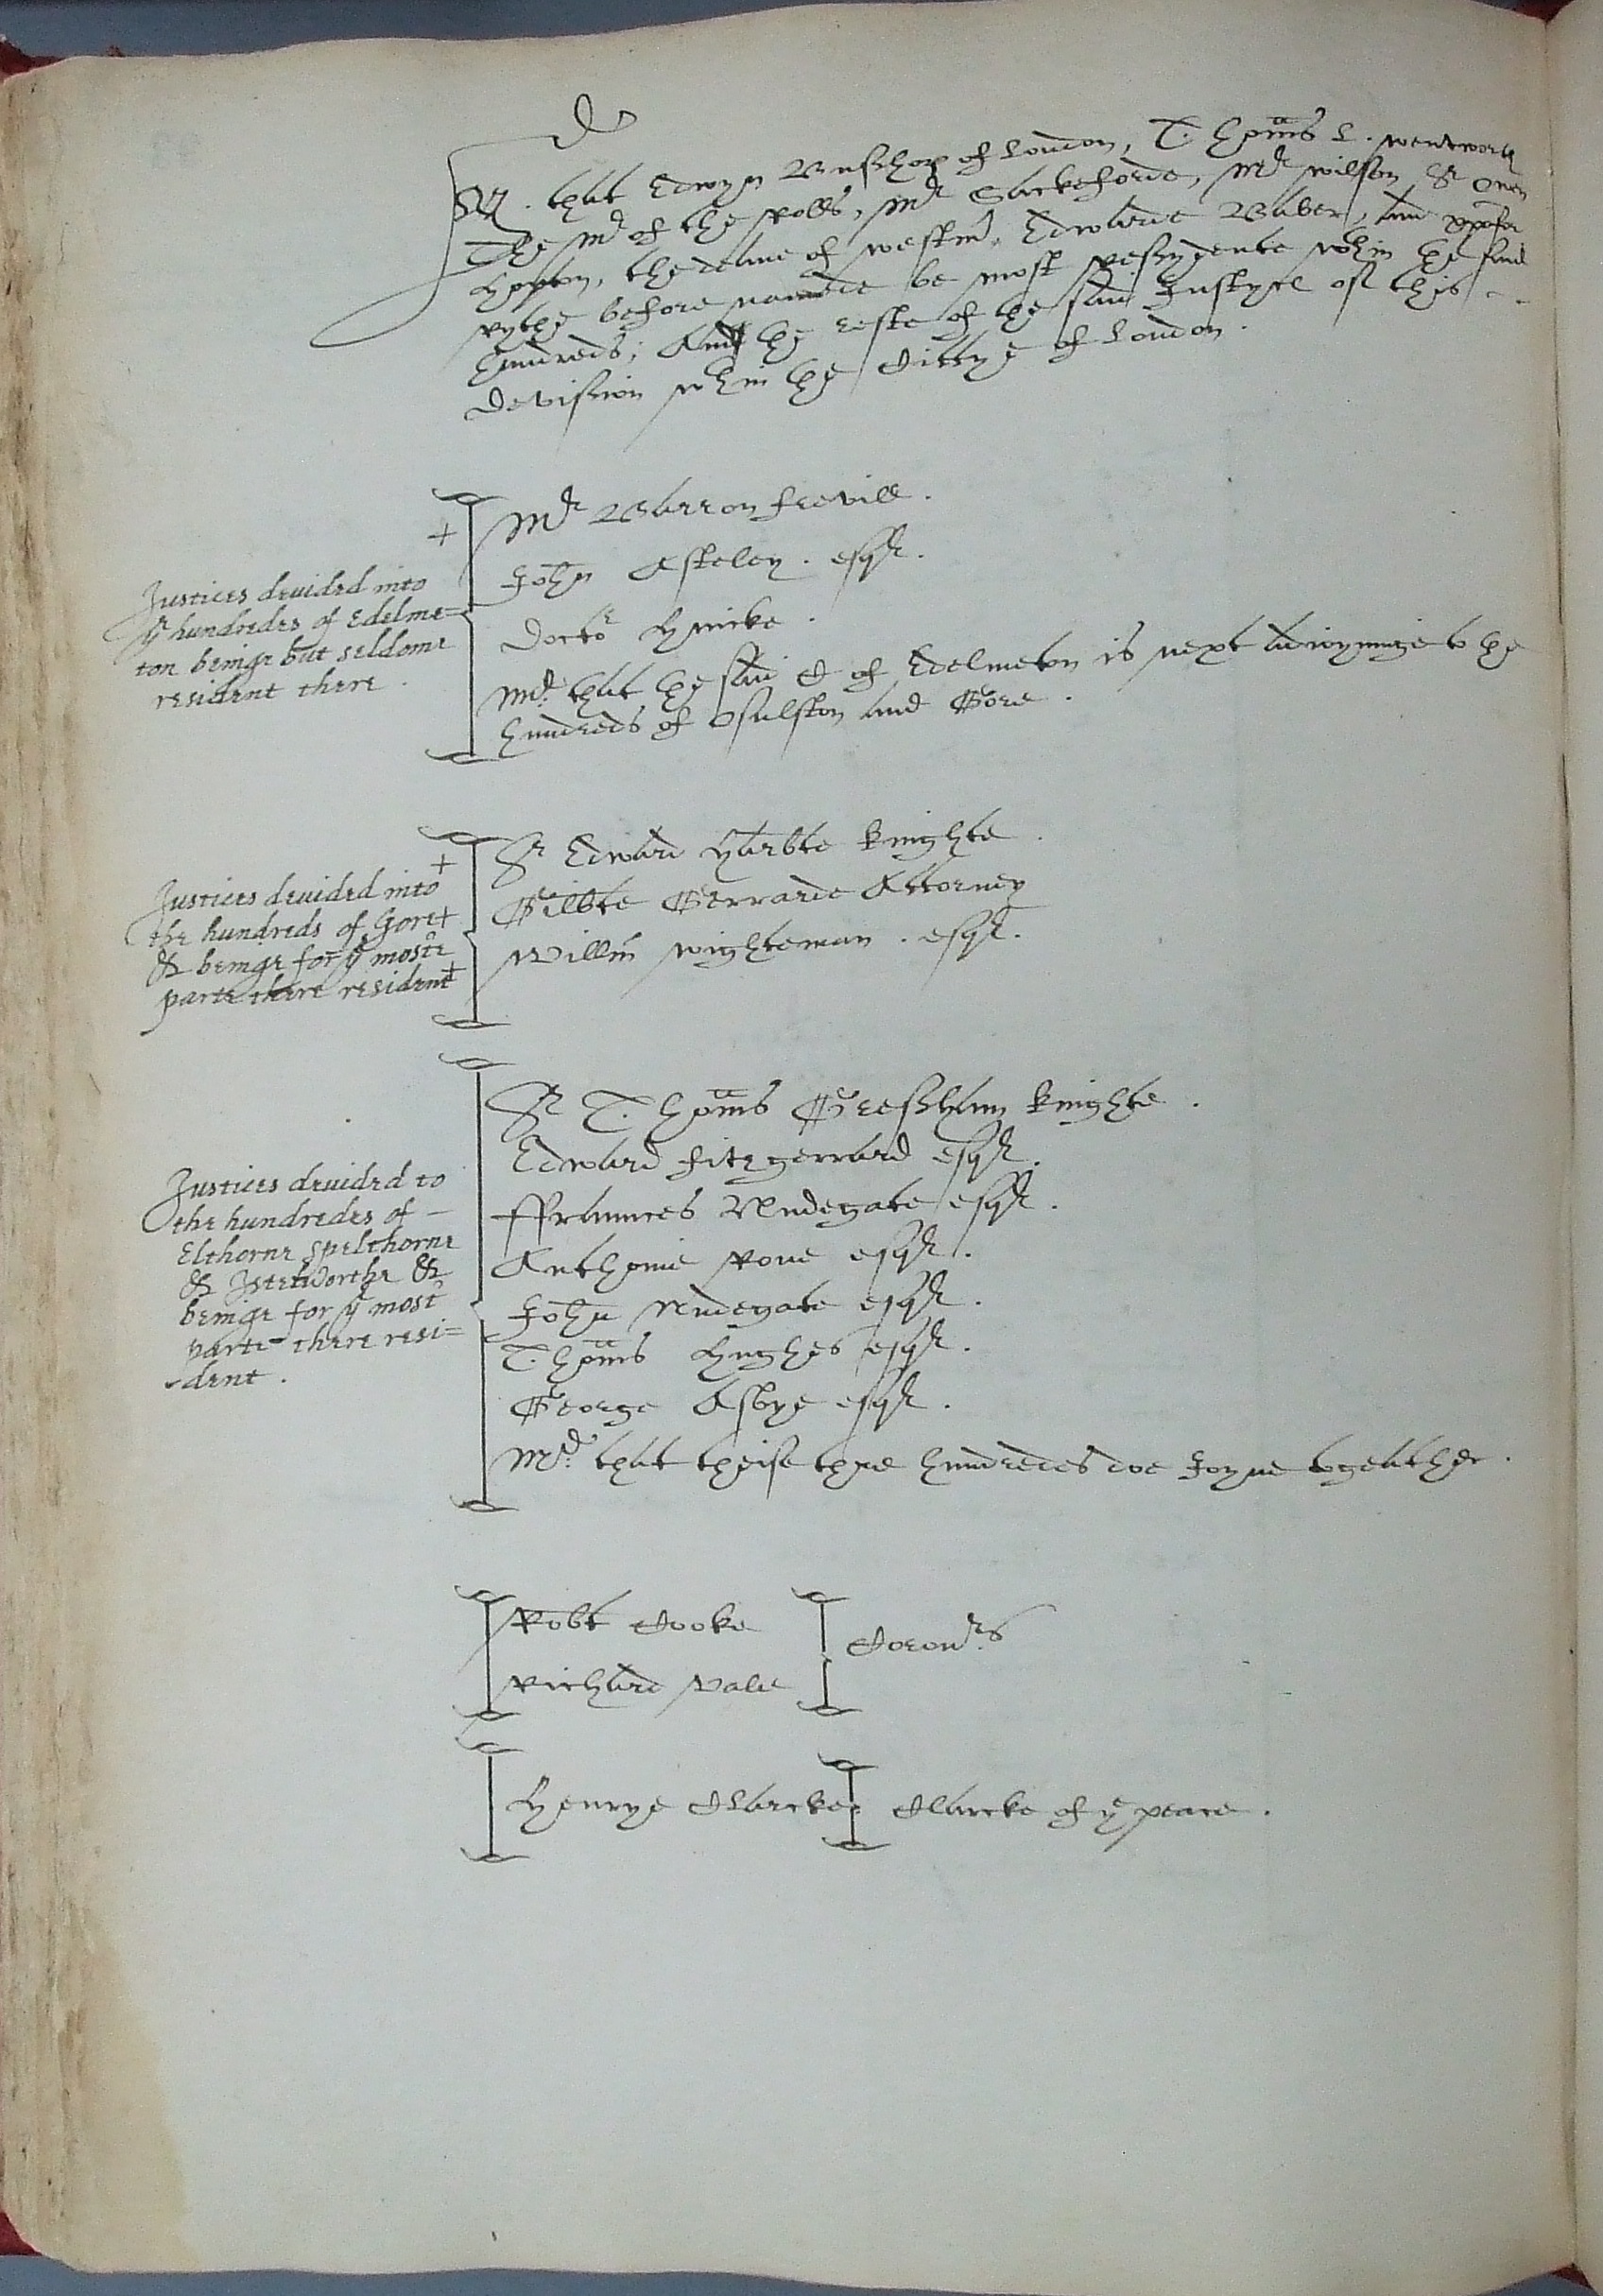 Md. that Edwyn Busshop of London, Thomas L. wentworth
The Mr of the Rolls, Mr Sackeforde, Mr wilson Sr Owen
hopton, the deane of westmr, Edwarde Baber, and xpofer
Rythe before namede be most resydente wthin the said
hundreds; And the reste of the said Justyces of this
devission wthin the Cittye of London.
Mr Barron frevill.
John Asteley. esqr.
Justices deuided into
ye hundredes of Edelme=
ton beinge but seldome
resident there.
Doctor Hincke.
Md. that the said C of Edelmeton is next adioyninge to the
hundreds of Osulston and Gore.
Justices deuided into
the hundreds of Gore
& beinge for ye moste
parte there resident
Sr Edward Harbte knighte.
Gilbte Gerrarde Attorney
Willm wighteman. esqr.
Justices deuided to
the hundredes of –
Elthorne Spelthorne
& Istelworthe &
beinge for ye most
parte there resi=
dent.
Sr Thomas Gressham knighte.
Edward fitzgerrard esqr.
ffraunces Nudegate esqr.
Anthonie Rone esqr.
John Nudegate esqr.
Thomas Hughes esqr.
George Asbye esqr.
Md. that theise three hundredes doe Joyne togeather.
Robt Cooke
Richard Vale
Coronrs
Henrye Clarke
Clarcke of ye peace.